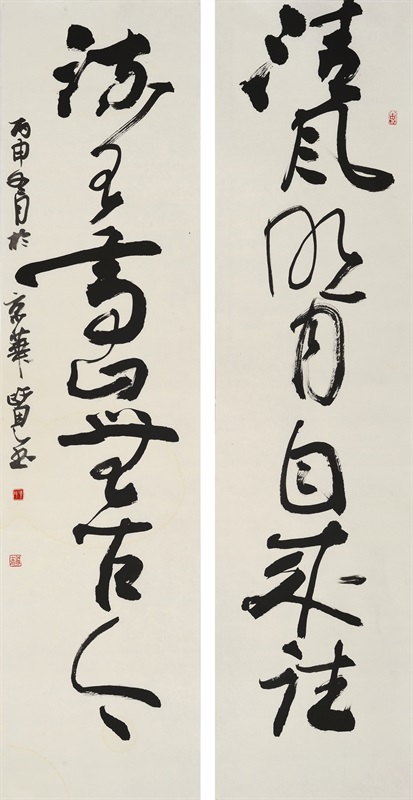 清風明月自來往
流水高山無古今
丙申冬月於京華